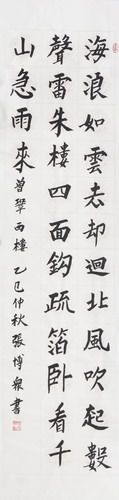 海浪如雲去却迴北風吹起數
聲雷朱樓四面鈎疏箔卧看千
山急雨來 曾鞏西樓 乙巳仲秋張博
書